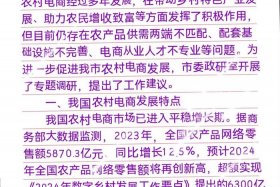 农村电商经过多年发展，在带动乡村特色产业发
展、助力农民增收致富等方面发挥了积极作用，
但目前仍存在农产品供需两端不匹配、配套基
础设施不完善、电商从业人才不专业等问题。为
进一步促进我市农村电商发展，市委政研室开展
了专题调研，提出了工作建议。
一、我国农村电商发展特点
我国农村电商市场已进入平稳增长期。据商
务部大数据监测，2023年，全国农产品网络零
售额5870.3亿元，同比增长12.5%，预计2024
年全国农产品网络零售额将再创新高，超额实现
《2024年数字乡村发展工作要点》提出的6300亿